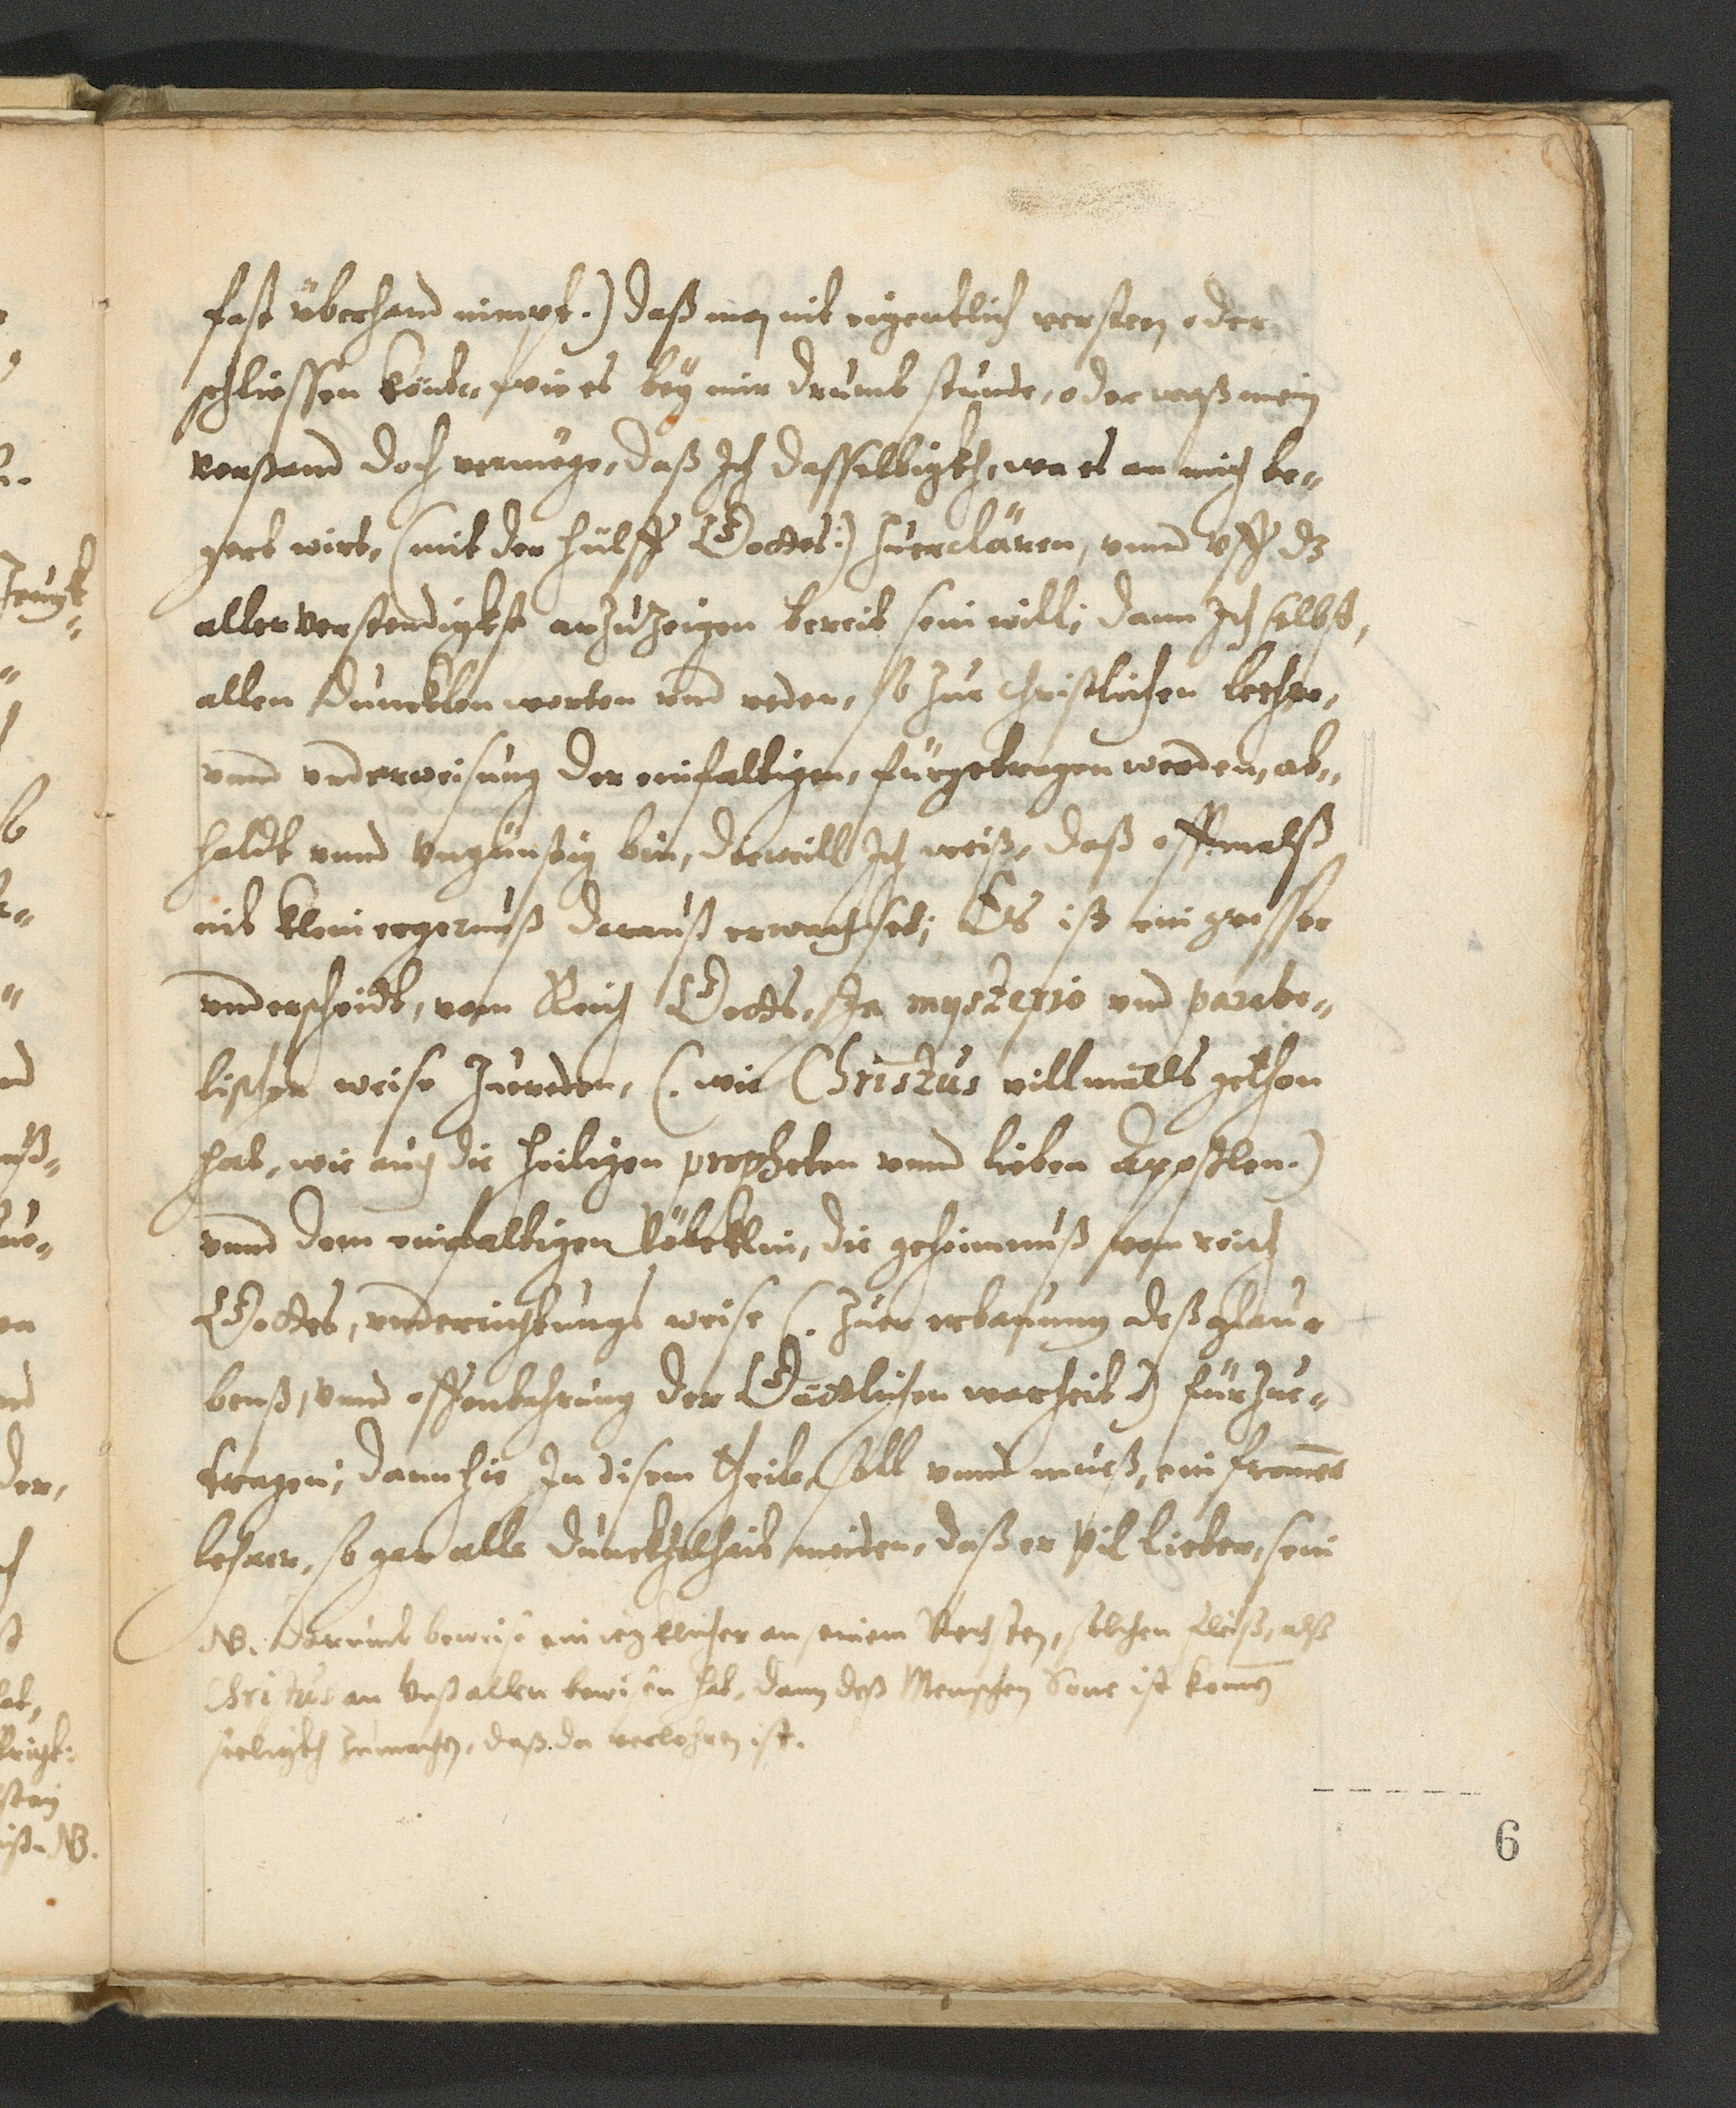 fast überhand nimpt.) daß man nit eigentlich versten, oder
schliessen könte, wie es bey mir drumb stunde, oder waß mein
verstand doch vermöge, daß Ich dasselbigkh, wa es an mich be„
gert wirt, (mit der hülff Gottes:) zuerclären, vnnd vff dz
allerverstendigkst anzuzeigen bereit sein will; dann Ich selbst,
allen duncklen worten vnd reden, so zur christlichen leehre,
vnnd vnderweisung der einfaltigen, fürgetragen werden, ab„
holdt vnnd vngünstig bin, dieweill Ich weiß, daß offtmalß
nit klein ergernuß darauß erwachset; Es ist ein grosser
vnderscheidt, vom Reich Gotts, In mysterio vnd parabo„
lischer weise zuereden, (. wie Christus villmalls gethon
hat, wie auch die heiligen propheten vnnd lieben Apostlen.)
vnnd dem einfaltigen Völcklin, die geheimnuß vom reich
Gottes, vnderrichtungs weise (. zuer erbauung deß glau„
benß, vnnd offenbahrung der Göttlichen warheit.) fürzue„
tragen; dann hie In disem theile, soll vnnd mueß, ein from̄er
lehrer, so gar alle dunckhelheit meiden, daß er vil lieber, sein
NB. darumb beweise ein iegklicher an seinem Nechsten, solchen fleiß, alß
Christus an vnß allen bewisen hat, dann deß Menschen Sone ist komen
seeligkh zumachen, daß da verlohren ist.
6